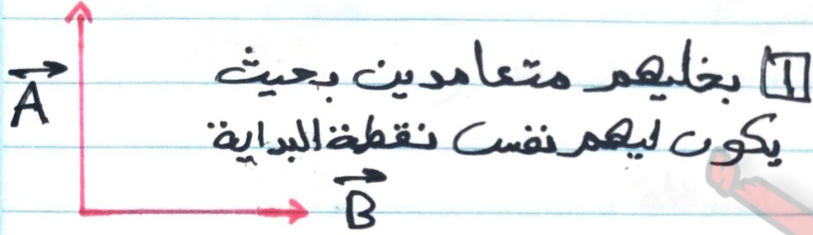 1 بخليهم متعامدين بحيث
يكون ليهم نفس نقطة البداية
A
B